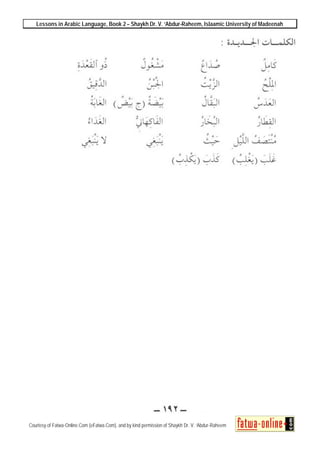 Lessons in Arabic Language, Book 2 – Shaykh Dr. V. ‘Abdur-Raheem, Islaamic University of Madeenah
الكلمـــات الجـــديـــدة :
كَامِلٌ صُدَاعٌ مَشْغُولٌ ذُو القَعْدَةِ
المِلْحُ الزَّيْتُ الجُبْنُ الدَّقِيقُ
العَدَسُ البَقَّالُ بَيْضَةٌ (ج بَيْضٌ) الغَابَةُ
القِطَارُ البُخَارُ الفَاكِهَانِيُّ الغَدَاءُ
مُنْتَصَفُ اللَّيْلِ حَيْثُ يَنْبَغِي لا يَنْبَغِي
غَلَبَ (يَغْلِبُ) كَذَبَ (يَكْذِبُ)
ــ ١٩٢ ــ
Courtesy of Fatwa-Online.Com (eFatwa.Com), and by kind permission of Shaykh Dr. V. ‘Abdur-Raheem
fatwa-online.com